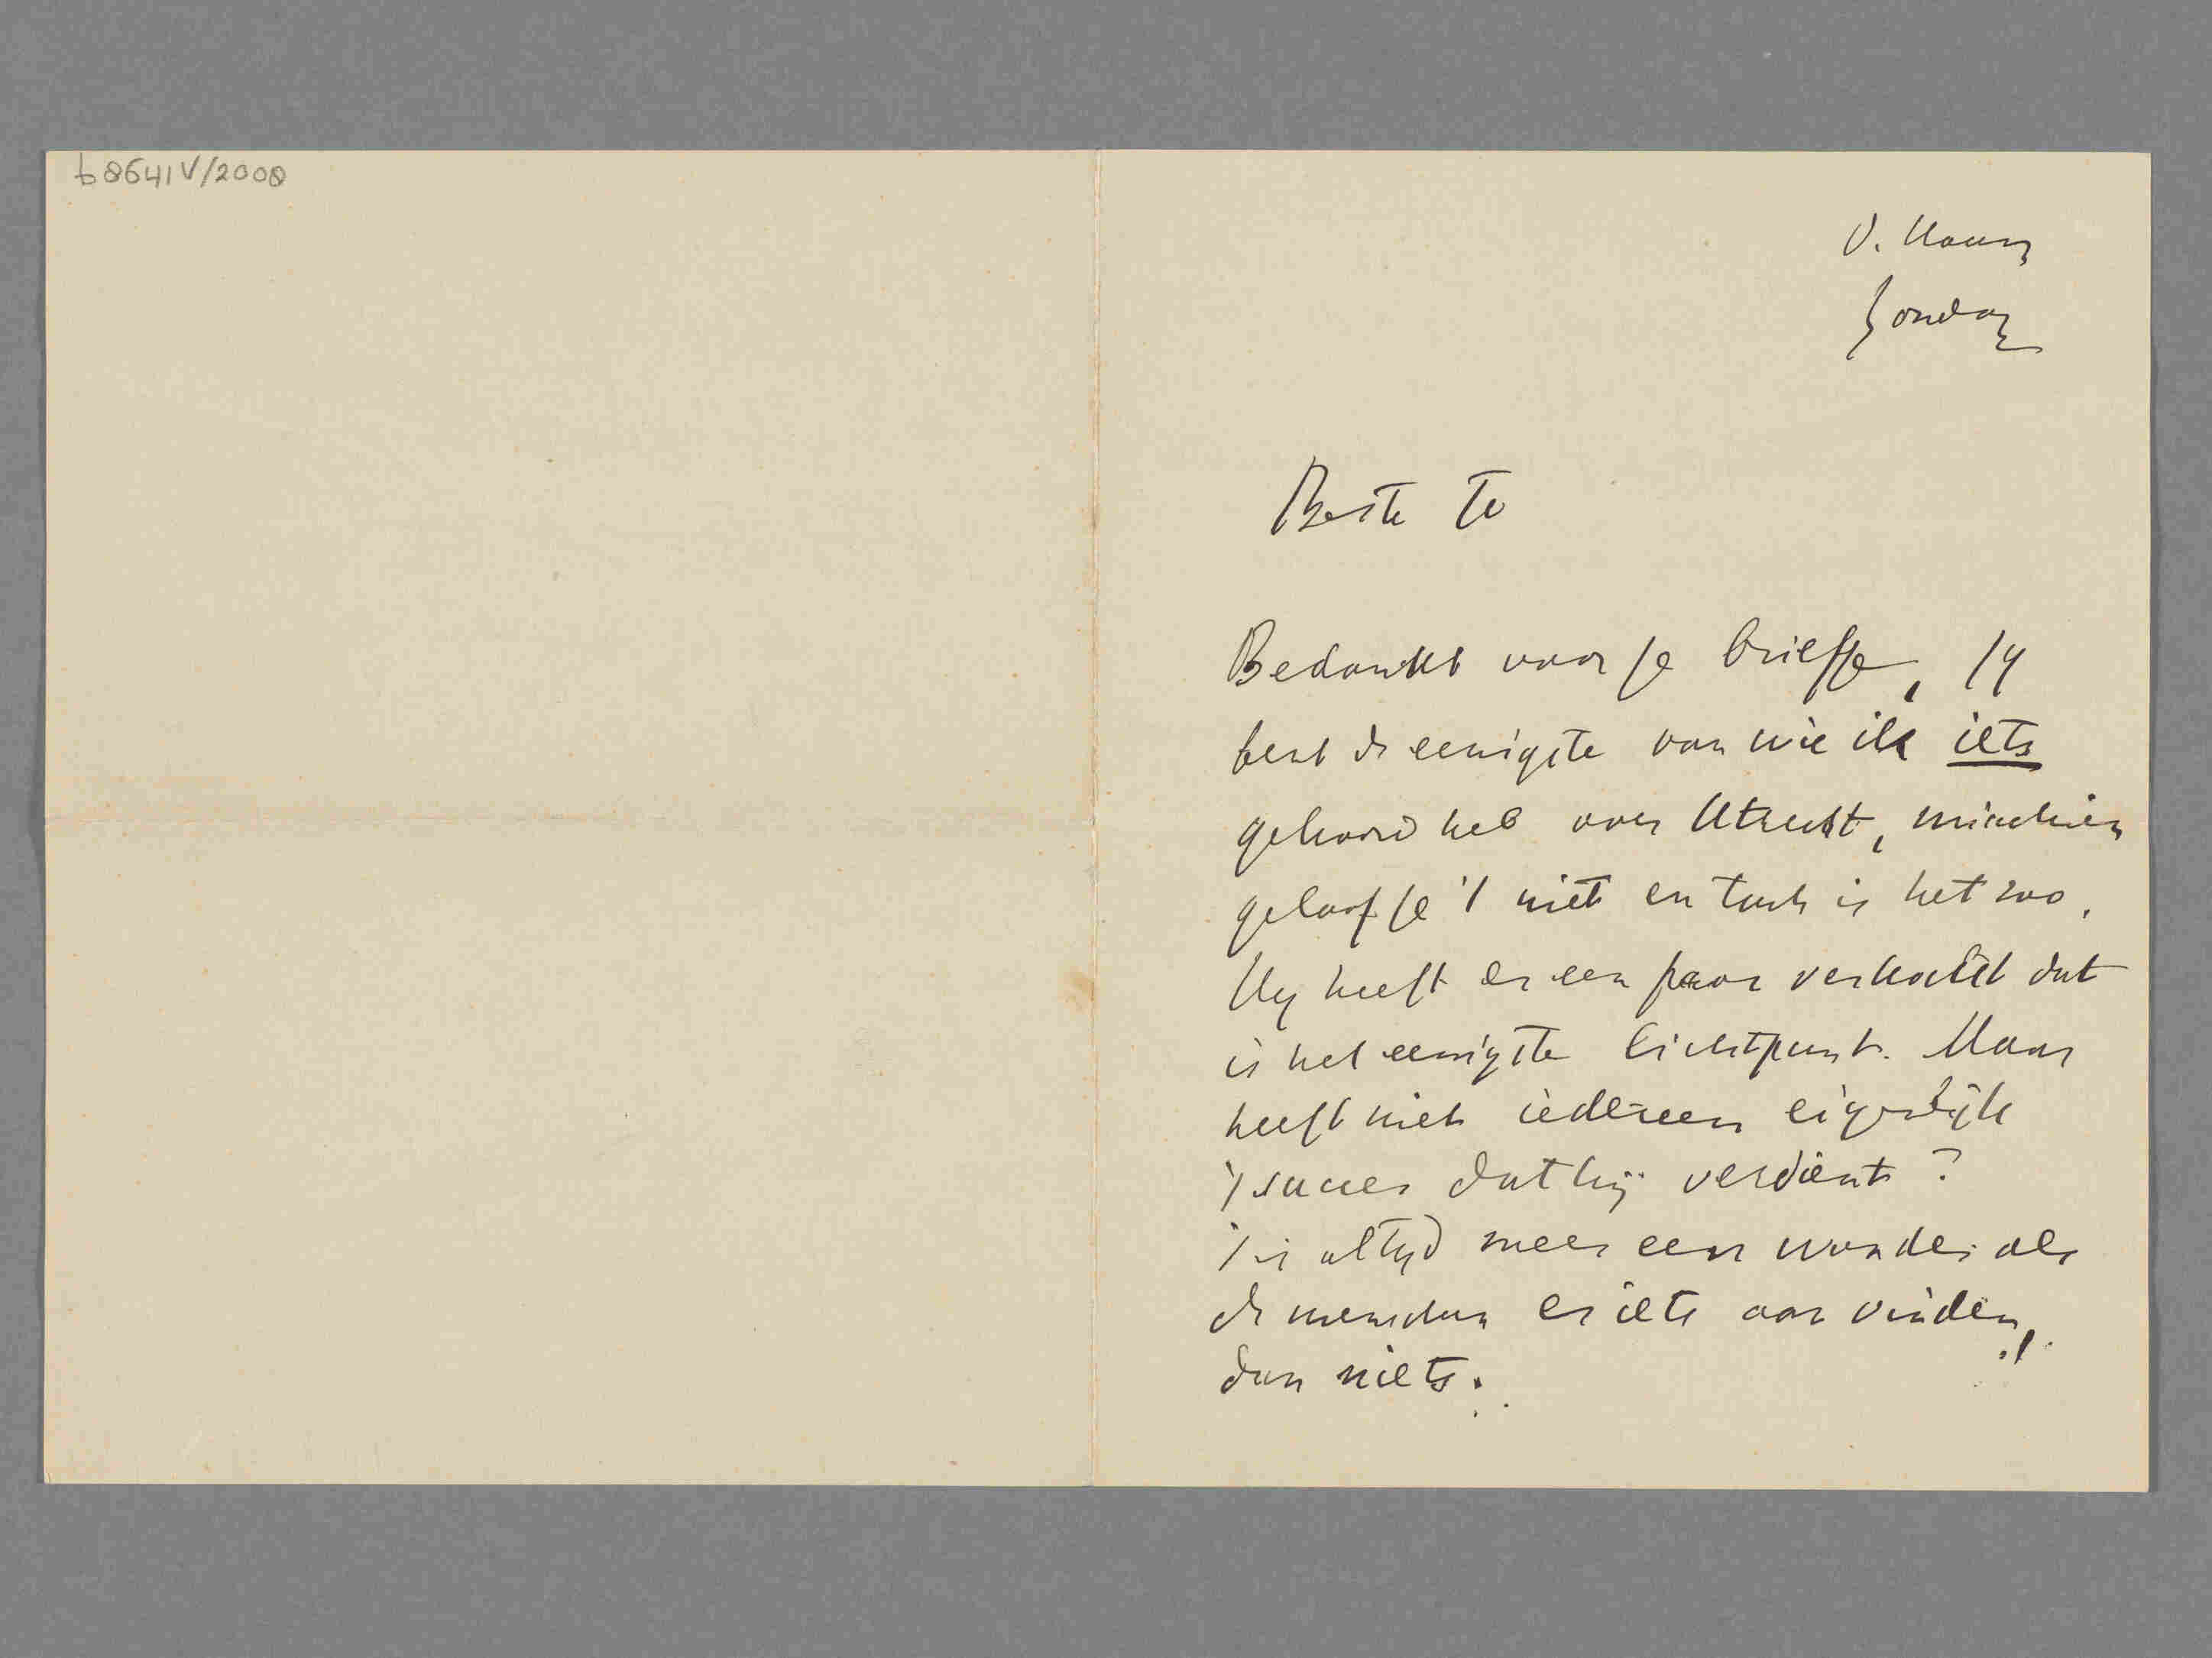 b8641V/2000
D. Haag
Zondag
Beste To
Bedankt voor je briefje, jy
bent de eenigste van wie ik iets
gehoord heb over Utrecht, misschien
geloof je 't niet en toch is het zoo.
Hy heeft er een paar verkocht dat
is het eenigste lichtpunt. Maar
heeft niet iedereen eigenlijk
't succes dat hij verdient?
't is altyd meer een wonder als
de menschen er iets aan vinden,
dan niets.